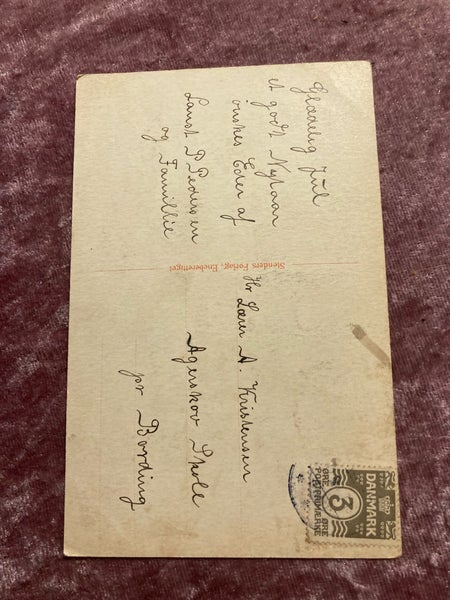 Glædelig Jul
et godt Nytaar
önskes Eder af
Laust P Pedersen
og Famillie
Stenders Forlag, Eneberettiget
Hr Lærer A. Kristensen
Agerskov Skole
pr Bording
DANMARK
3
ØRE
ØRE
POSTFRIMÆRKE